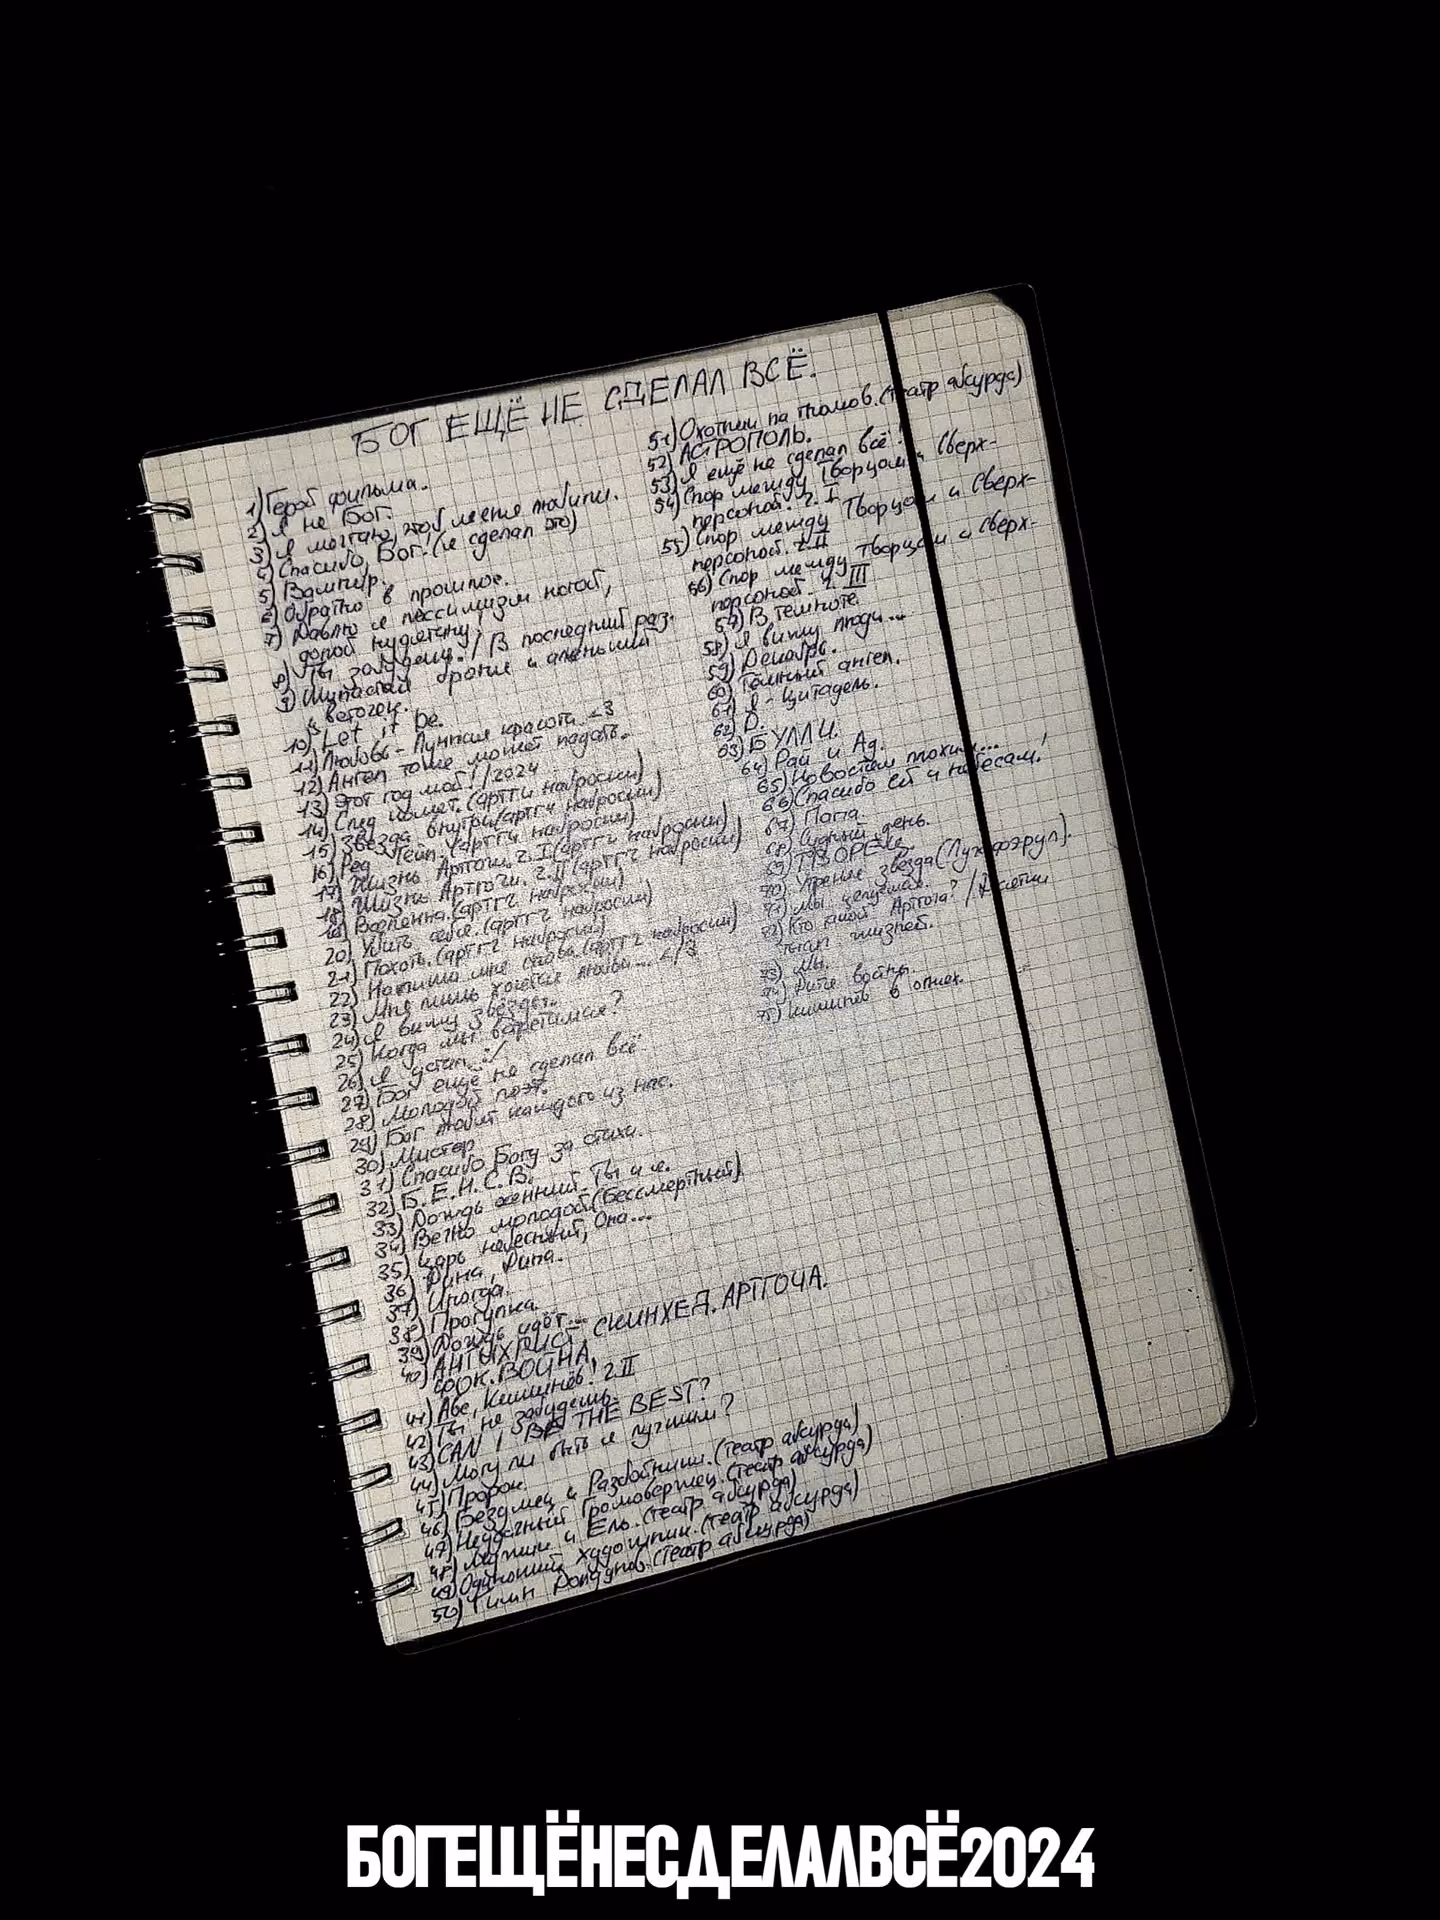 БОГ ЕЩЁ НЕ СДЕЛАЛ ВСЁ.
1) Герой фильма.
2) Я не Бог.
3) Я мечтаю, чтоб меня любили.
4) Спасибо, Бог. (я сделал это)
5) Вампир.
6) Обратно в прошлое.
7) Давлю я пессимизм ногой,
долой нудятину!
8) Ты забудешь! / В последний раз.
9) братие и аленький
цветочек.
10) Let it be.
11) Любовь - Лунная красота <3
12) Ангел тоже может падать.
13) Этот год мой! / 2024
14) След комет. (артгч наброски)
15) Звезда внутри (артгч наброски)
16) Ред Тейп. (артгч наброски)
17) Жизнь Артточи. ч. I (артгч наброски)
18) Жизнь Артточи. ч. II (артгч наброски)
19) Вселенна. (артгч наброски)
20) Убить себя. (артгч наброски)
21) Похоть. (артгч наброски)
22) Напиши мне снова. (артгч наброски)
23) Мне лишь хочется любви... </3
24) Я вижу звёзды.
25) Когда мы встретимся?
26) Я устал :/
27) Бог ещё не сделал всё
28) Молодой поэт.
29) Бог любит каждого из нас.
30) Мистер
31) Спасибо Богу за стихи.
32) Б.Е.Н.С.В.
33) Дождь осенний. Ты и я.
34) Вечно молодой (Бессмертный)
35) Царь небесный, Она...
36) Дина, Дина.
37) Иногда.
38) Прогулка.
39) Дождь идёт...
40) АНТИХРИСТ - СКИНХЕД. АРТТОЧА.
ФОК. ВОЙНА.
41) Аве, Кишинёв! ч. II
42) Ты не забудешь.
43) CAN I BE THE BEST?
44) Могу ли быть я лучшим?
45) Пророк.
46) Безумец и Разбойники. (театр абсурда)
47) Неудачный Громовержец. (театр абсурда)
48) и Ель. (театр абсурда)
49) Одинокий художник. (театр абсурда)
50) Гимн (театр абсурда)
51) Охотники на гномов. (театр абсурда)
52) АСТРОПОЛЬ.
53) Я ещё не сделал всё!
54) Спор между Творцом и Сверх-
персоной. ч. I
55) Спор между Творцом и Сверх-
персоной. ч. II
56) Спор между Творцом и Сверх-
персоной. ч. III
57) В темноте.
58) Я вижу люди...
59) Декабрь.
60) Тёмный ангел.
61) Я - Цитадель.
62) D.
63) БУЛЛИ.
64) Рай и Ад.
65) Новостям плохим...
66) Спасибо ей и небесам!
67) Папа
68) Судный день.
69)
70) Утрение звезда (Люхфоэрул).
71) Мы
72) Кто такой Артточа? / Десятки
тысяч жизней.
73) Мы.
74) Дитё войны.
75) Кишинёв в огнях.
БОГЕЩЁНЕСДЕЛАЛВСЁ2024